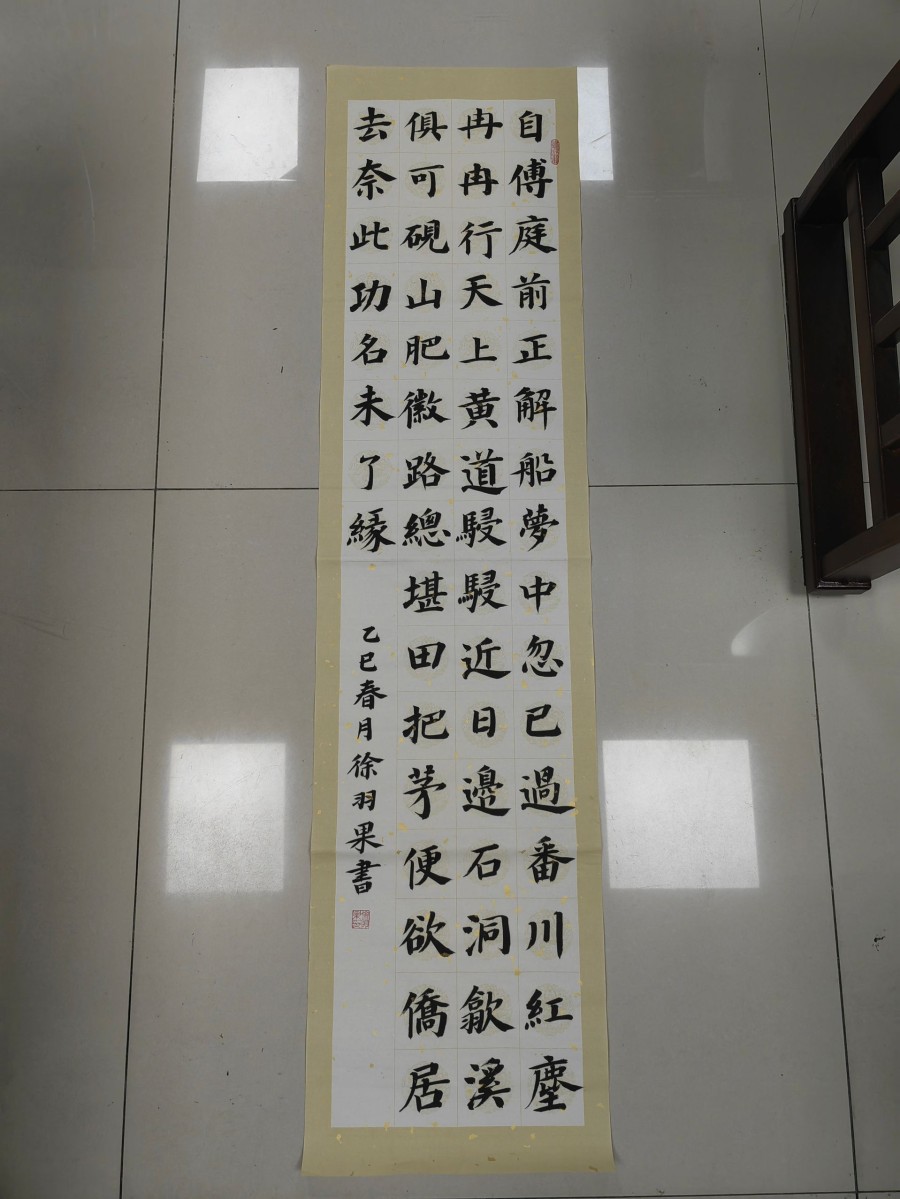 自傅庭前正解船夢中忽已過番川紅塵
冉冉行天上黄道駸駸近日邊石洞歙溪
俱可硯山肥徽路總堪田把茅便欲僑居
去奈此功名未了緣
乙巳春月徐羽果書